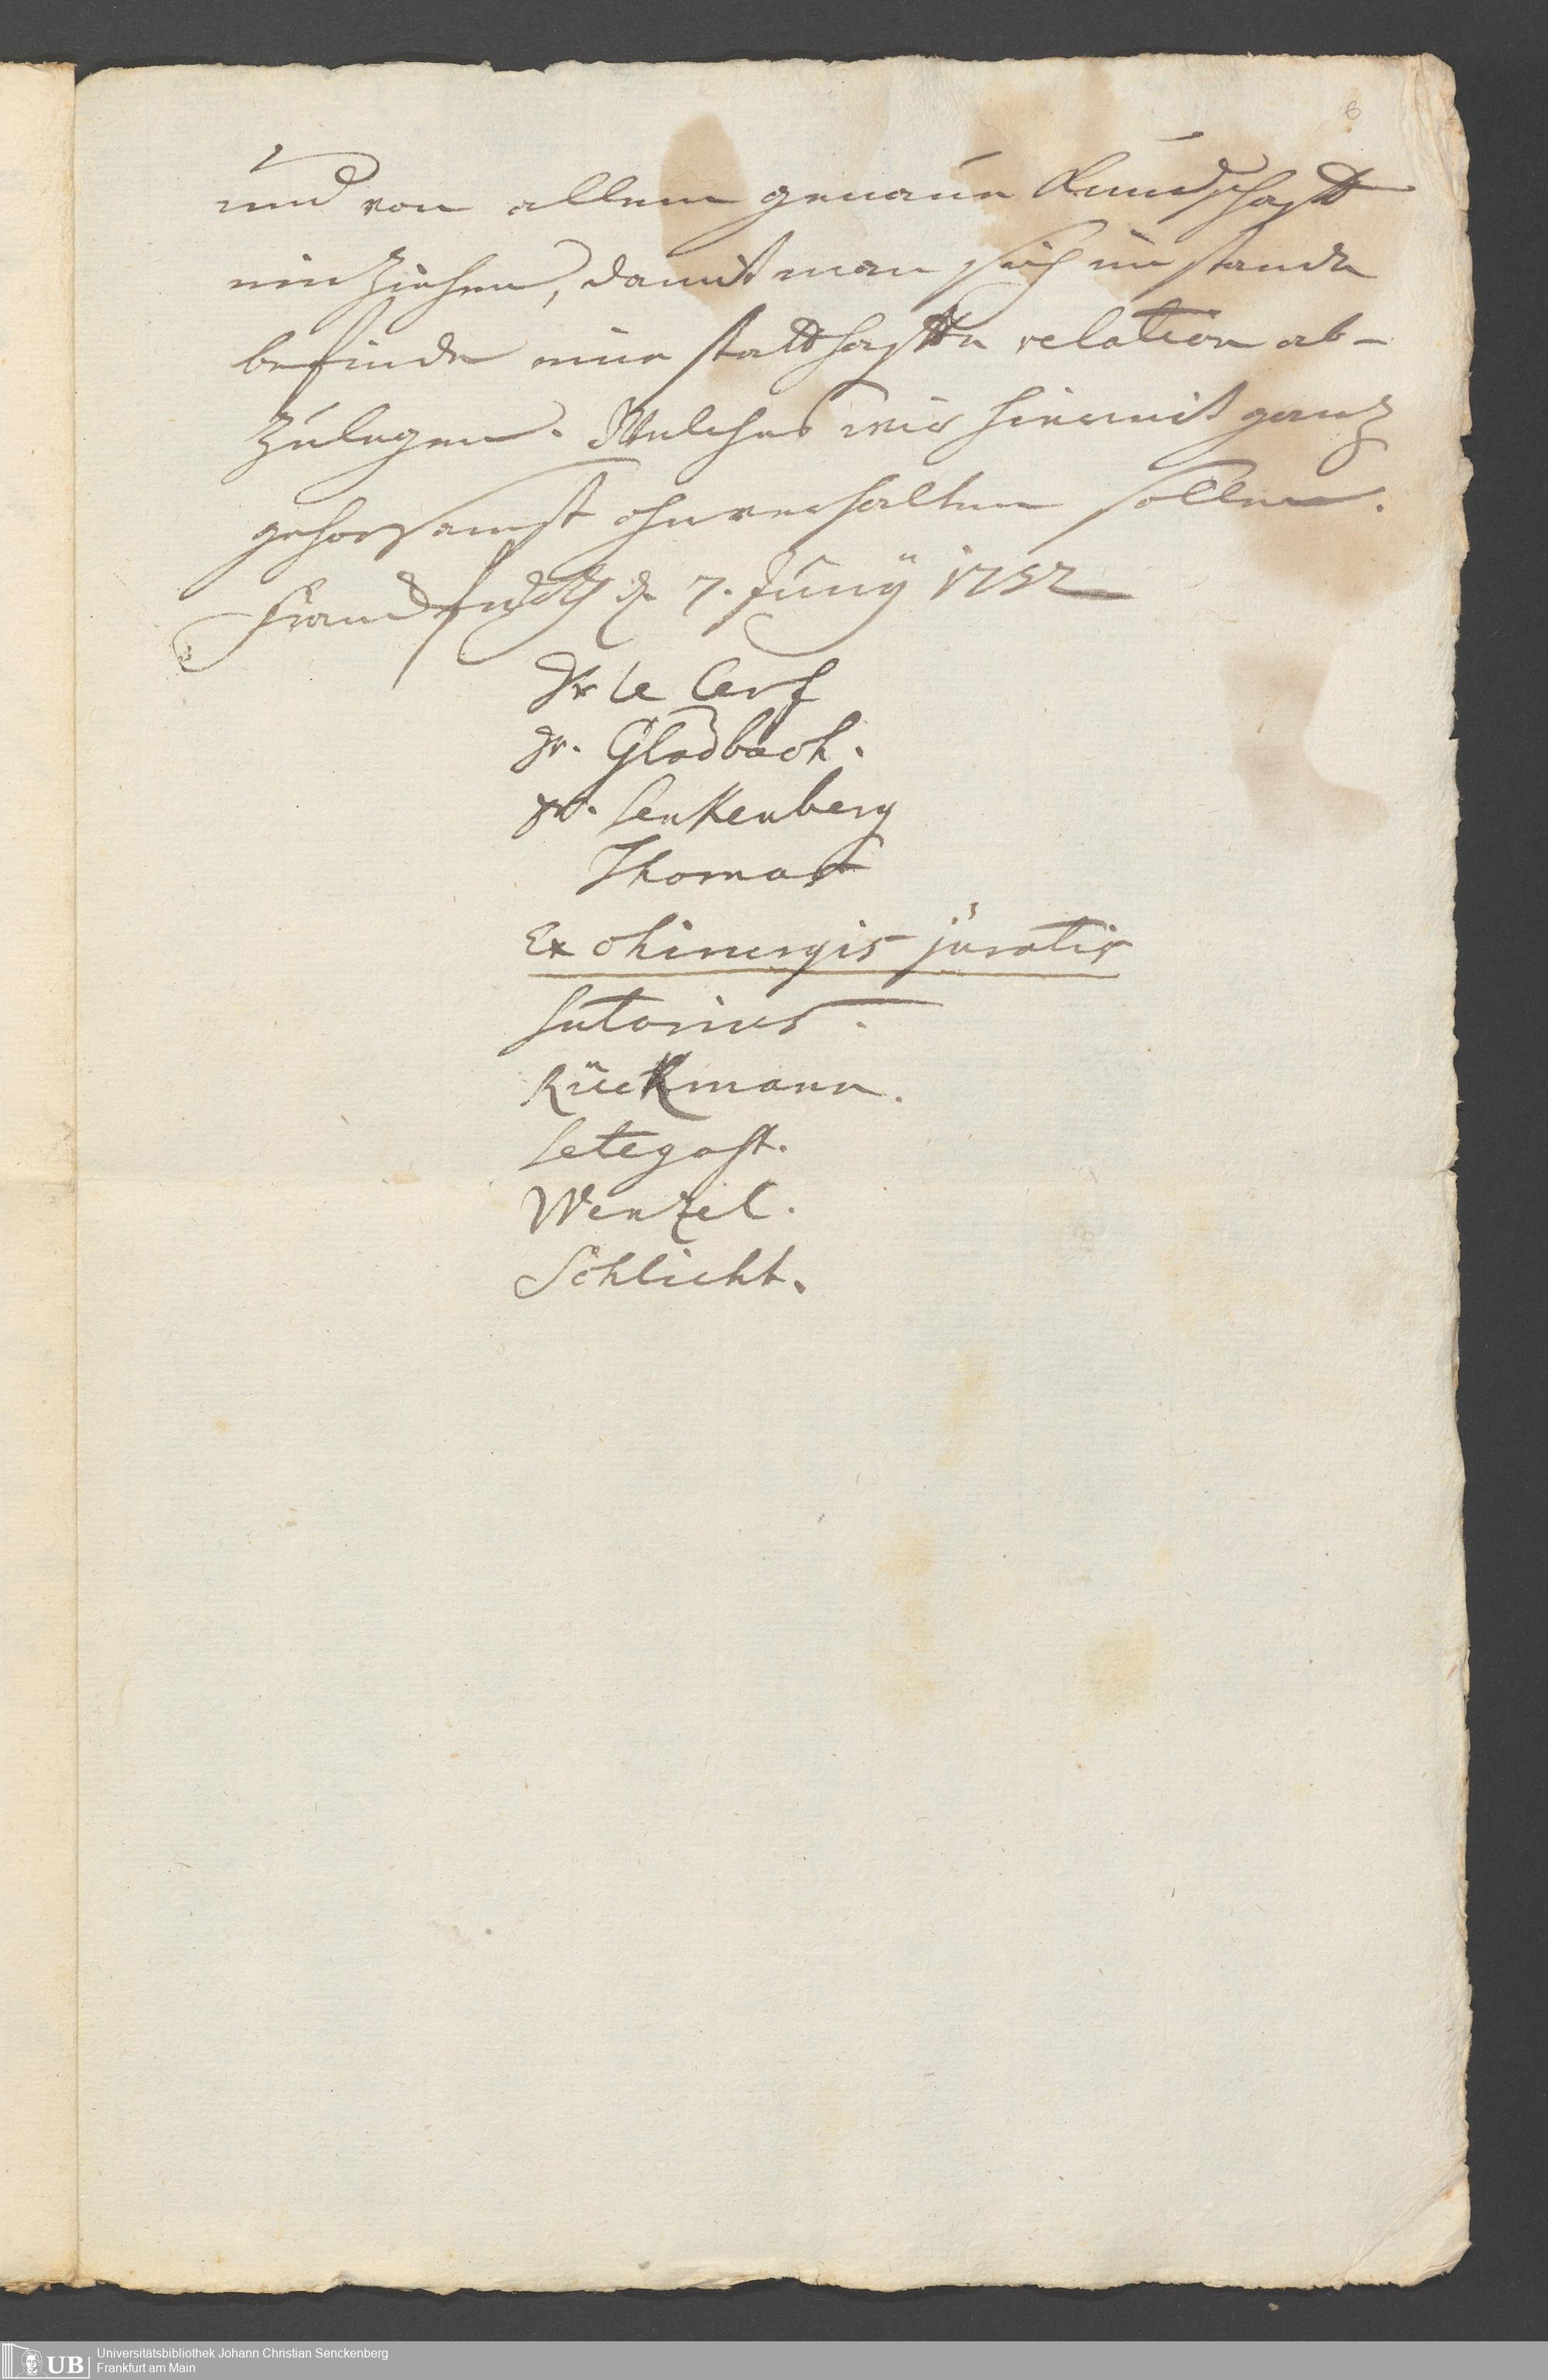 6
und von allem genaue Kundschafft
einziehen, damit man sich im stande
befinde eine statthaffte relation ab-
zulegen. Welches wir hiermit ganz
gehorsamst ohnverhalten sollen.
d. 7. Juny 1757
Dr le Cerf
Dr. Gladbach.
Dr. Senkenberg
Thomas
Ex chirurgis juratis
Sutorius.
Rückmann.
Setegast.
Wenzel.
Schlicht.
UB Universitätsbibliothek Johann Christian Senckenberg
Frankfurt am Main